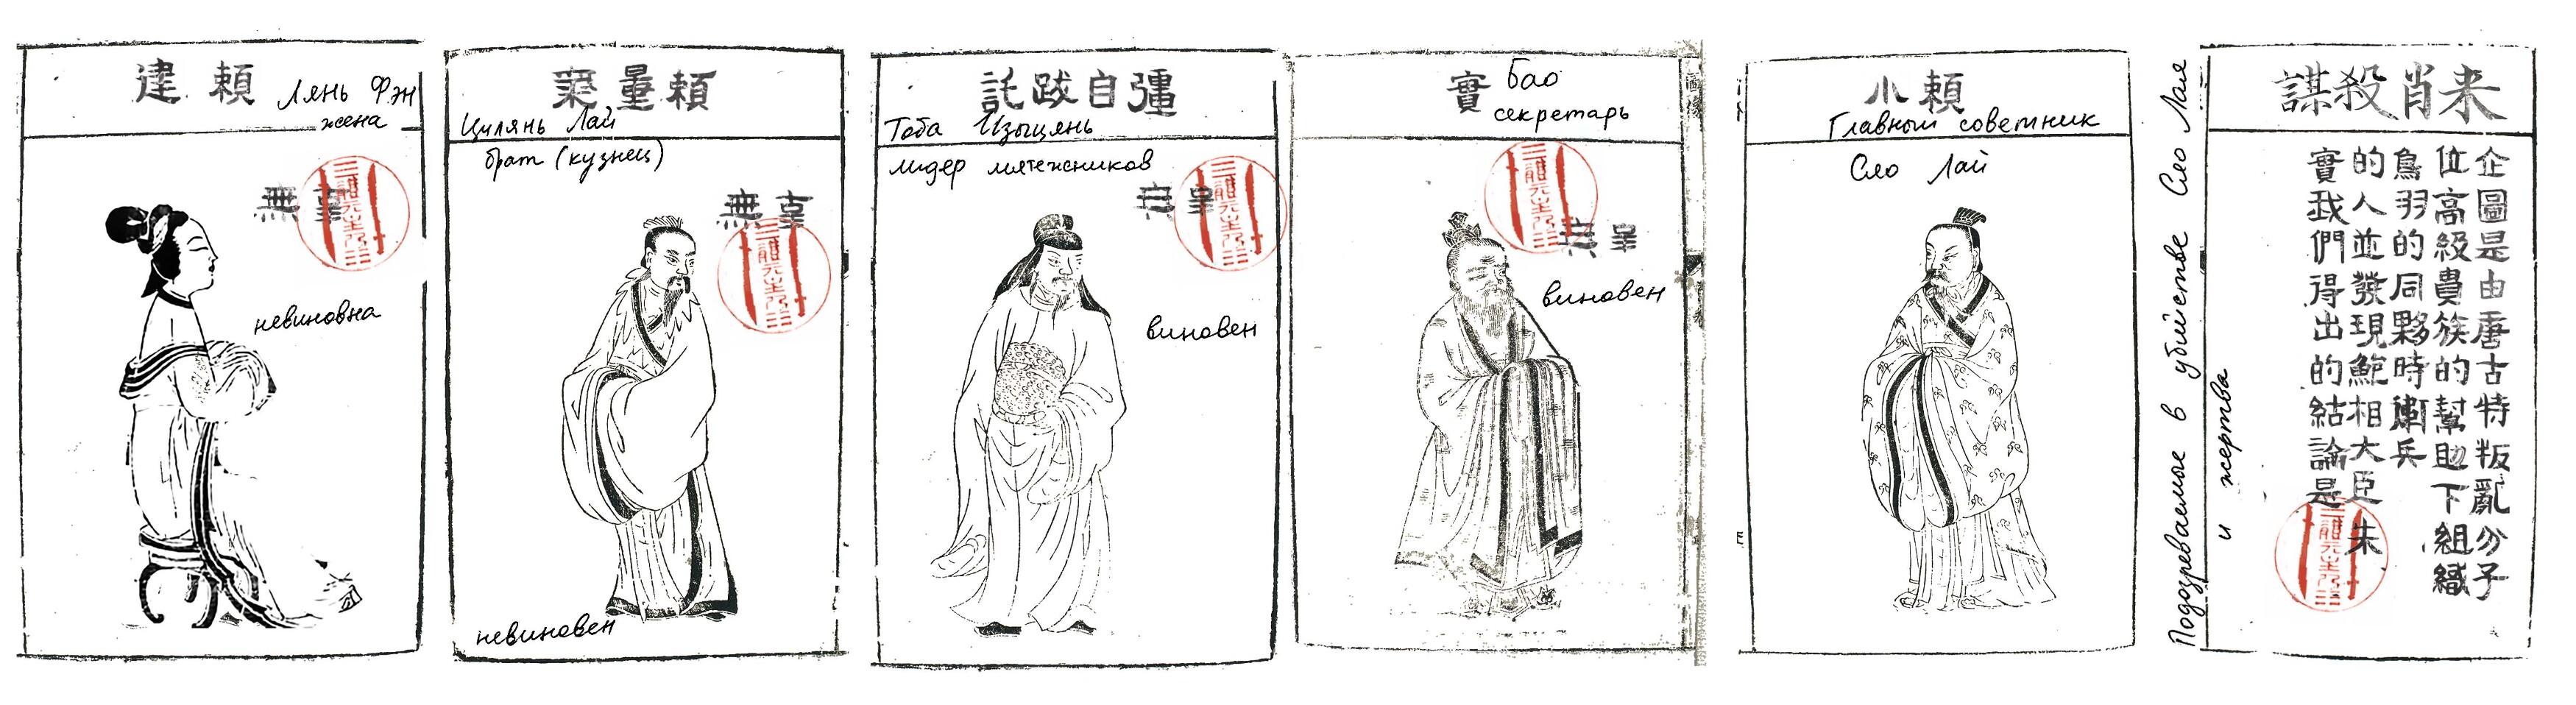 建 賴
Лянь Фэн
жена
無 辜
невиновна
量 賴
Цилянь Лай
брат (кузнец)
無 辜
невиновен
託 跋 自 彊
Тоба Цзыцянь
лидер мятежников
виновен
實
Бао
секретарь
виновен
小 賴
Главный советник
Сяо Лай
Подозреваемые в убийстве Сяо Лая
и жертва
謀殺肖来
企圖是由唐古特叛亂分子
位高級貴族的幫助下組織
鳥羽的同夥時 兵
的人並發現鮑相大臣朱
實我們得出的結論是